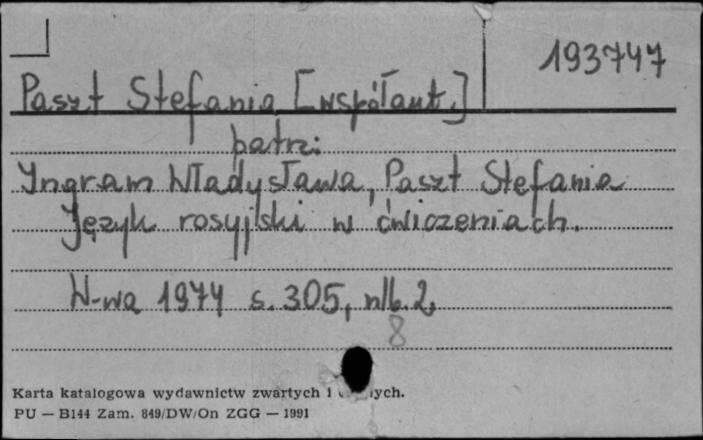 193747
Paszt Stefania [współaut.]
patrz:
Yngram Władysława, Paszt Stefania
Język rosyjski w ćwiczeniach.
W-wa 1974 s. 305, nlb. 2,
8
Karta katalogowa wydawnictw zwartych i ych.
PU — B144 Zam. 849/DW/On ZGG — 1991